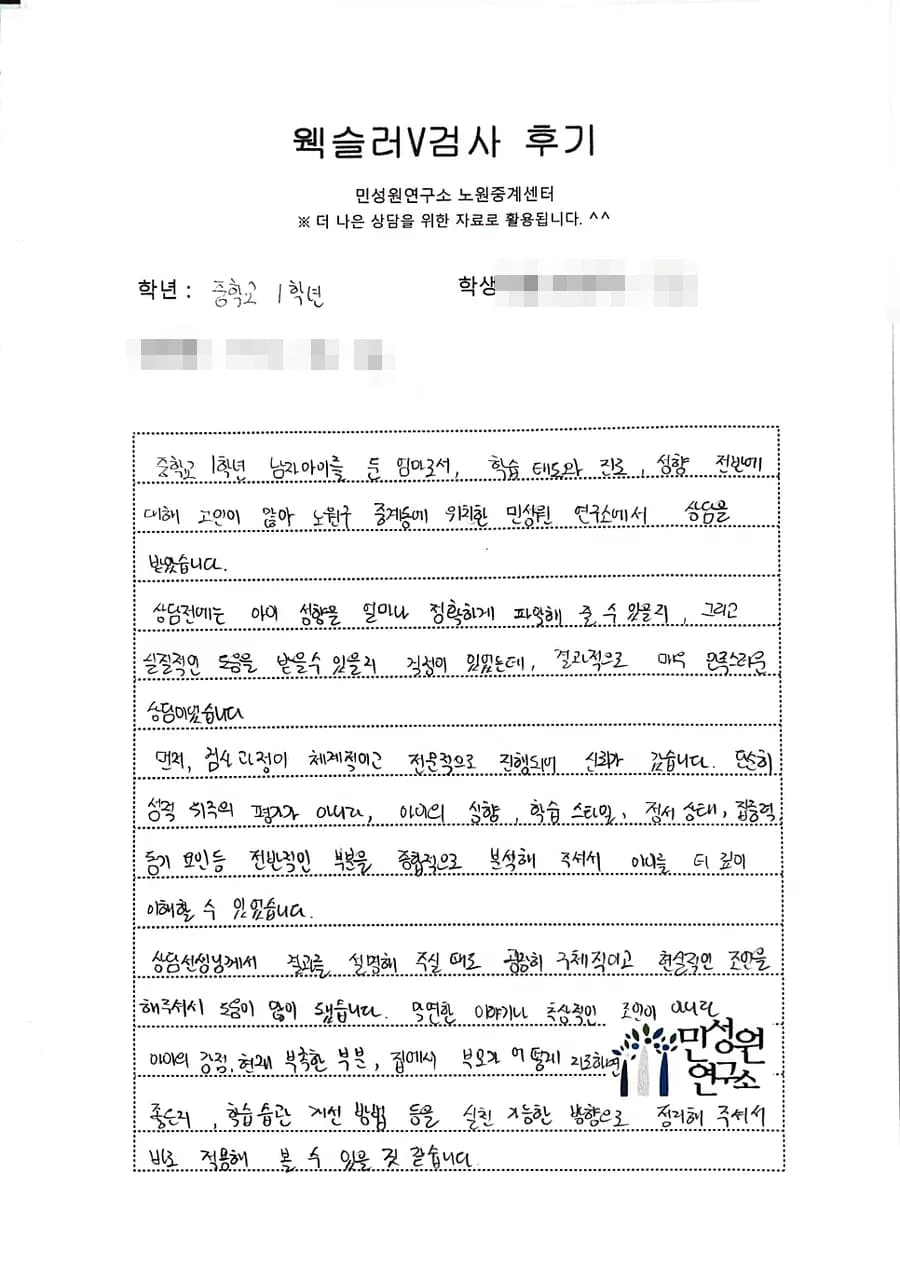 웩슬러V검사 후기
민성원연구소 노원중계센터
※ 더 나은 상담을 위한 자료로 활용됩니다. ^^
학년 : 중학교 1학년 학생
중학교 1학년 남자아이를 둔 엄마로서, 학습 태도와 진로, 성향 전반에
대해 고민이 많아 노원구 중계동에 위치한 민성원 연구소에서 상담을
받았습니다.
상담전에는 아이 성향을 얼마나 정확하게 파악해 줄 수 있을지, 그리고
실질적인 도움을 받을수 있을지 걱정이 있었는데, 결과적으로 매우 만족스러운
상담이었습니다
먼저, 검사 과정이 체계적이고 전문적으로 진행되어 신뢰가 갔습니다. 단순히
성적 위주의 평가가 아니라, 아이의 성향, 학습 스타일, 정서 상태, 집중력,
동기 요인등 전반적인 부분을 종합적으로 분석해 주셔서 아이를 더 깊이
이해할 수 있었습니다.
상담선생님께서 결과를 설명해 주실 때도 굉장히 구체적이고 현실적인 조언을
해주셔서 도움이 많이 됐습니다. 막연한 이야기나 추상적인 조언이 아니라
아이의 강점, 현재 부족한 부분, 집에서 부모가 어떻게 지도하면
좋은지, 학습습관 개선 방법 등을 실천 가능한 방향으로 정리해 주셔서
바로 적용해 볼 수 있을 것 같습니다.
민성원
연구소